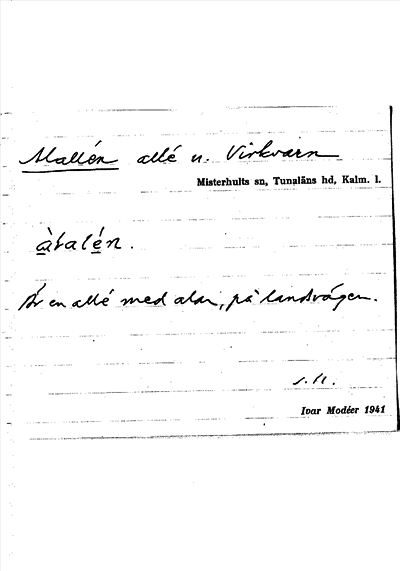 Alallén allé u. Virkvarn
Misterhults sn, Tunaläns hd, Kalm. l.
àlalén.
Är en allé med alar, på landsvägen.
Ivar Modéer 1941